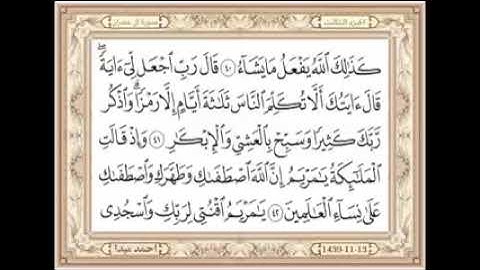 الجزء الثالث
سورة آل عمران
كَذَٰلِكَ ٱللَّهُ يَفْعَلُ مَا يَشَآءُ ٤٠ قَالَ رَبِّ ٱجْعَل لِّىٓ ءَايَةً ۖ
قَالَ ءَايَتُكَ أَلَّا تُكَلِّمَ ٱلنَّاسَ ثَلَٰثَةَ أَيَّامٍ إِلَّا رَمْزًا ۗ وَٱذْكُر
رَّبَّكَ كَثِيرًا وَسَبِّحْ بِٱلْعَشِىِّ وَٱلْإِبْكَٰرِ ٤١ وَإِذْ قَالَتِ
ٱلْمَلَٰٓئِكَةُ يَٰمَرْيَمُ إِنَّ ٱللَّهَ ٱصْطَفَىٰكِ وَطَهَّرَكِ وَٱصْطَفَىٰكِ
عَلَىٰ نِسَآءِ ٱلْعَٰلَمِينَ ٤٢ يَٰمَرْيَمُ ٱقْنُتِى لِرَبِّكِ وَٱسْجُدِى
1439-11-13